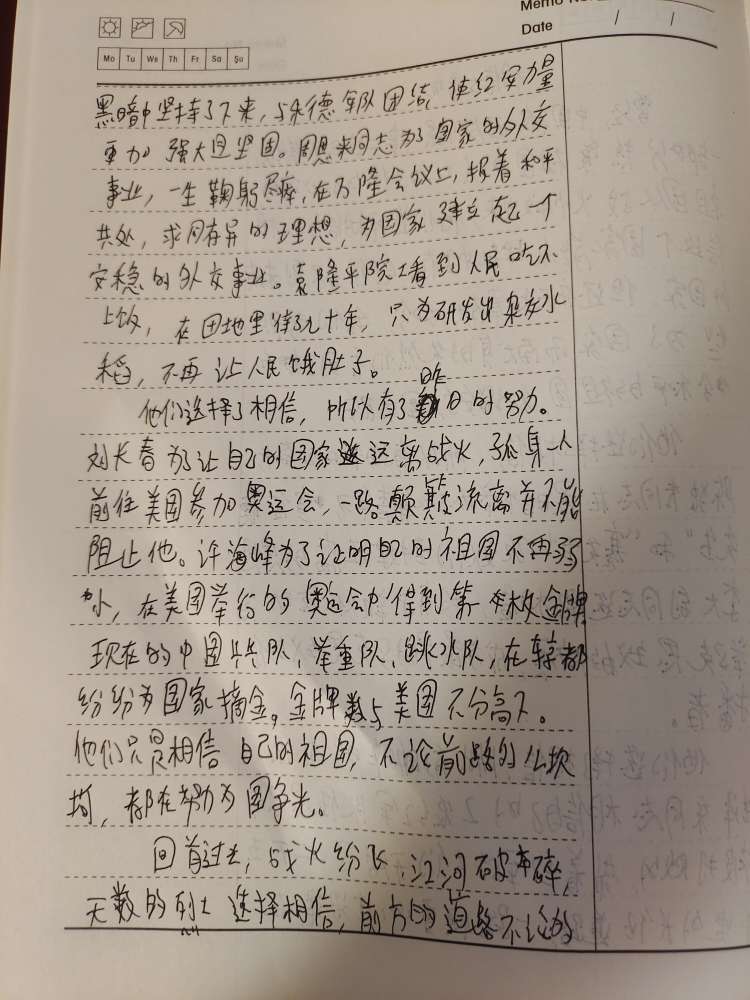 Memo No.
Date / /
Mo Tu We Th Fr Sa Su
黑暗中坚持了下来，与朱德军队团结，使红军力量
更加强大且坚固。周恩来同志为了国家的外交
事业，一生鞠躬尽瘁，在万隆会议上，报着和平
共处，求同存异的理想，为国家建立起一个
安稳的外交事业。袁隆平院士看到人民吃不
上饭，在田地里待了九十年，只为研发出杂交水
稻，不再让人民饿肚子。
他们选择了相信，所以有了昨日的努力。
刘长春为了让自己的国家远离战火，孤身一人
前往美国参加奥运会，一路颠沛流离并不能
阻止他。许海峰为了证明自己的祖国不再弱
小，在美国举行的奥运会中得到第一枚金牌
现在的中国乒乓队、举重队、跳水队，在
纷纷为国家摘金，金牌数与美国不分高下。
他们只是相信自己的祖国，不论前路的么坎
坷，都在努力为国争光。
回首过去，战火纷飞，江河破碎，
无数的烈士选择相信，前方的道路不论的